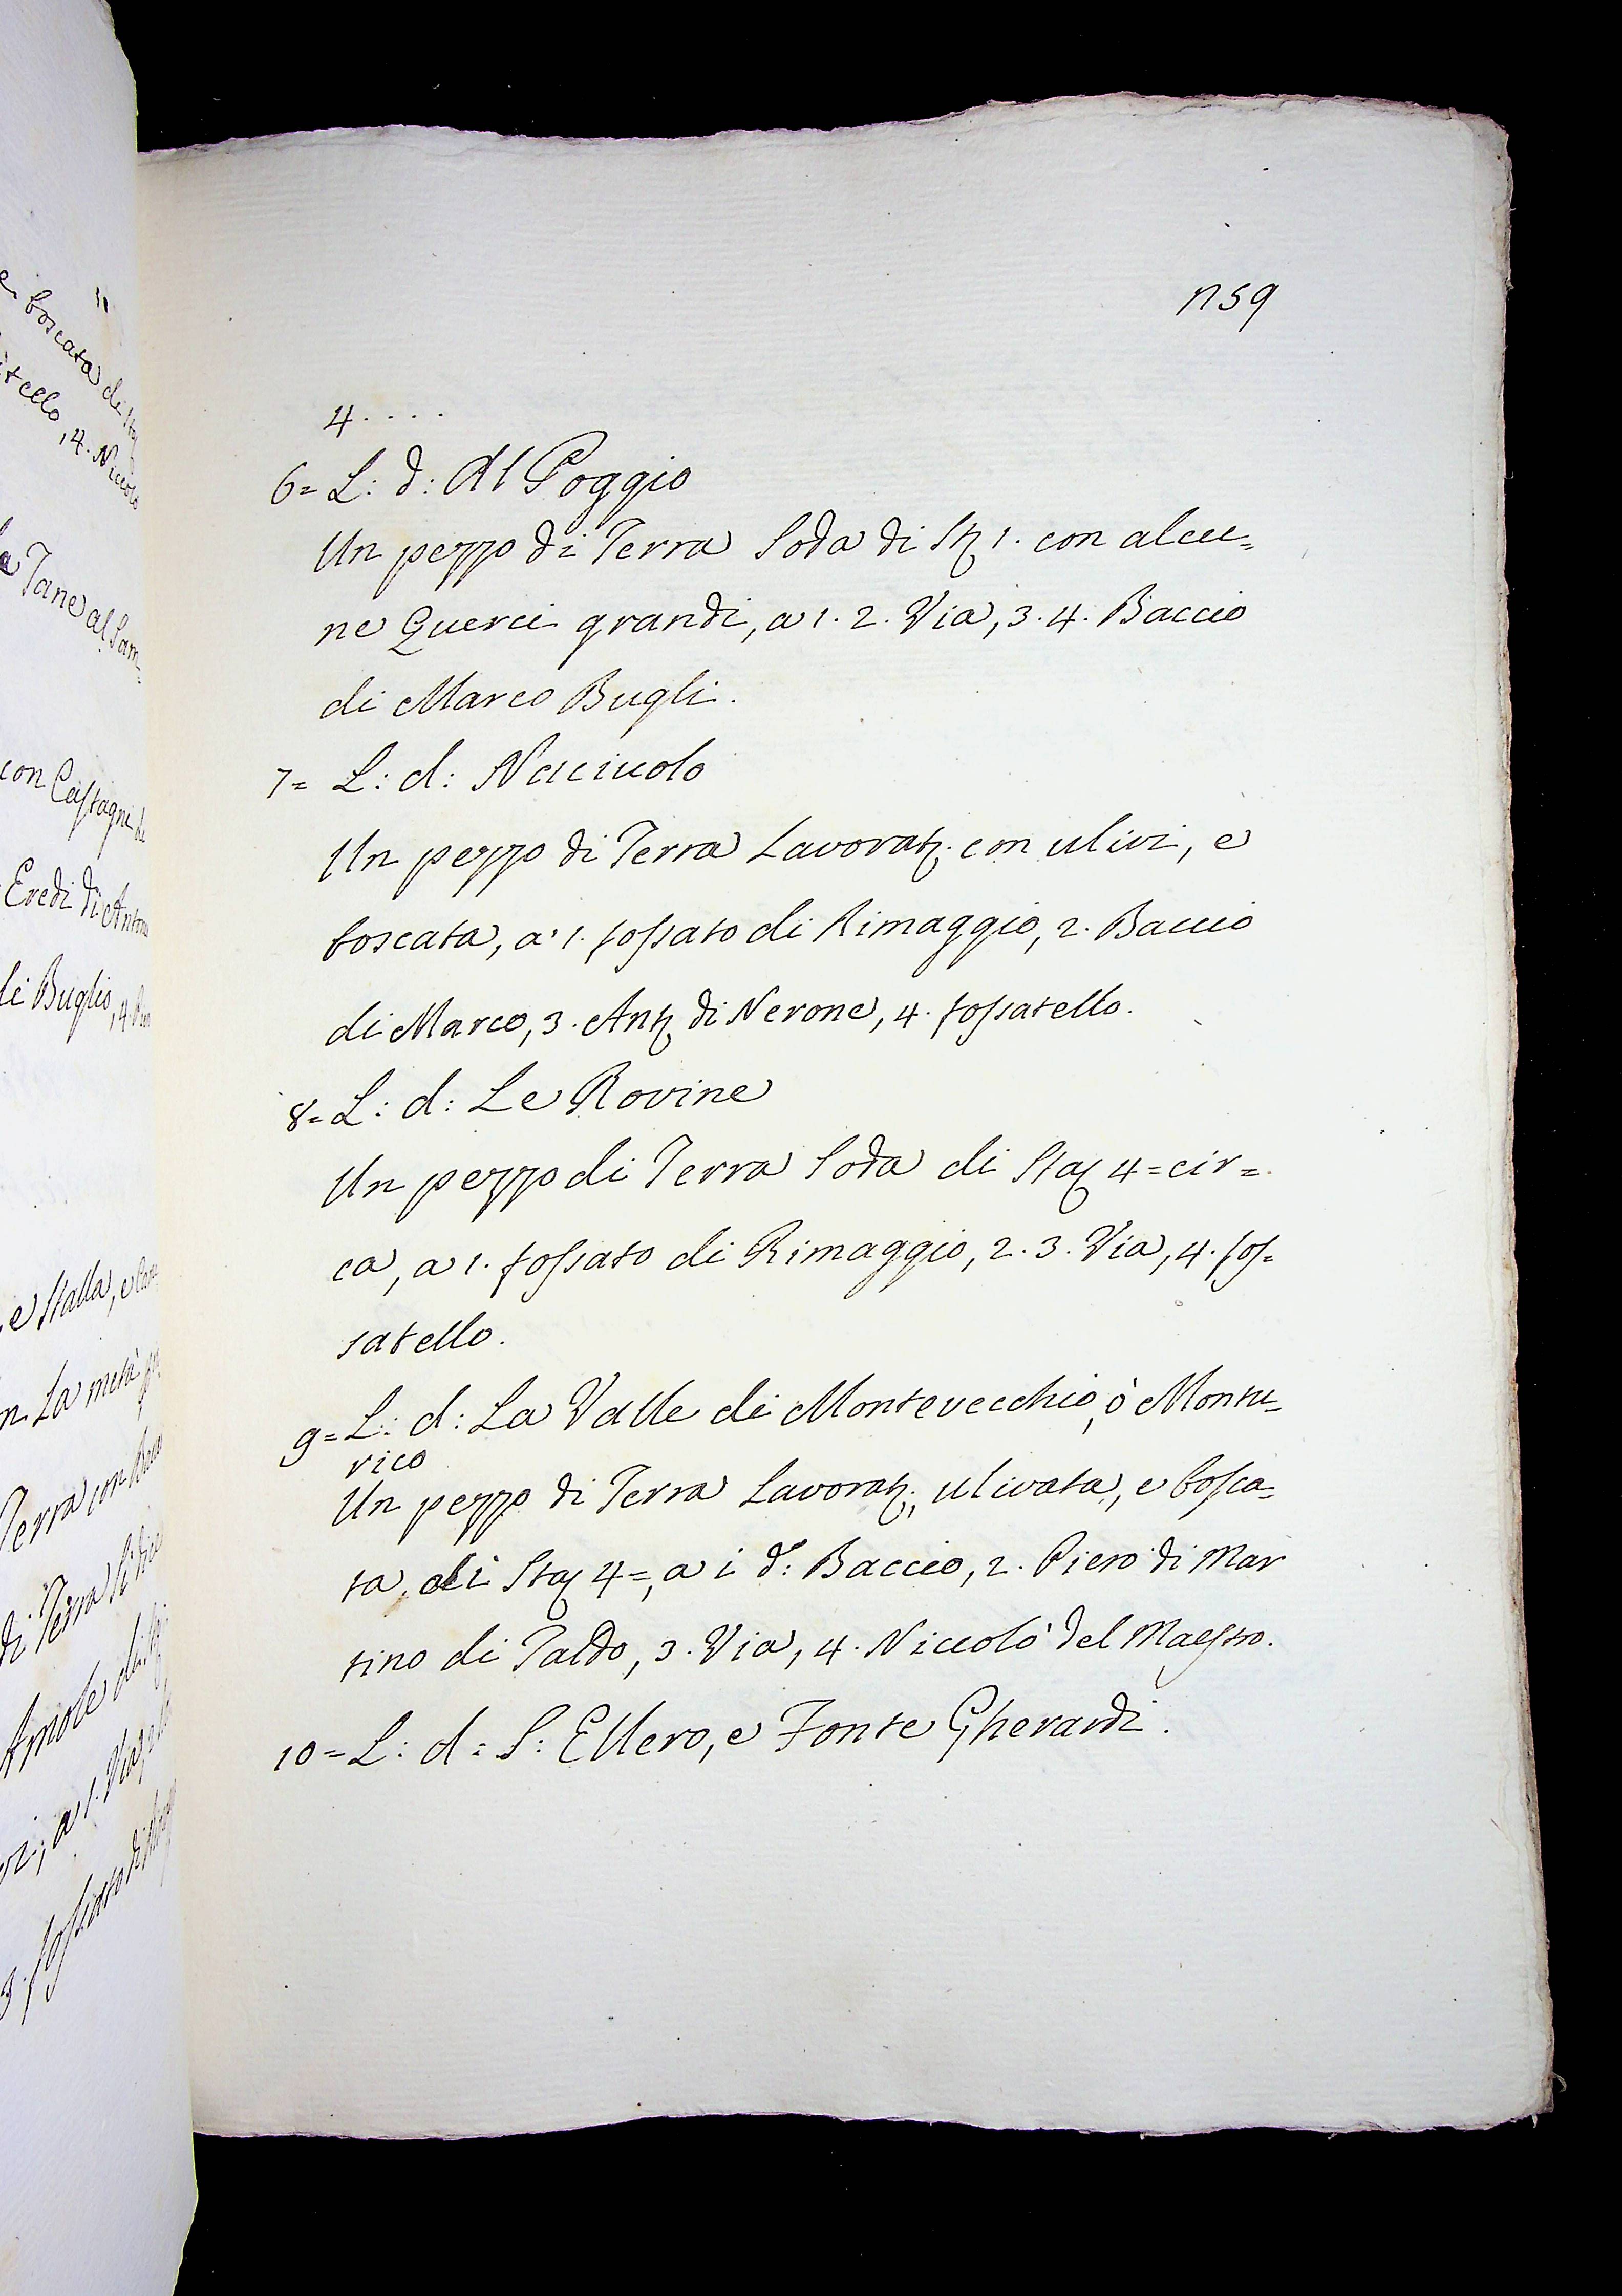 n 59
4 . . . .
6= L: d: Al Poggio
Un pezzo di Terra Soda di St 1. con alcu=
ne Querci grandi, a 1. 2. Via, 3. 4. Baccio
di Marco Bugli.
7= L: d:
Un pezzo di Terra Lavorat: con ulivi, e
boscata, a' 1. fossato di Rimaggio, 2. Baccio
di Marco, 3. Ant di Nerone, 4. fossatello.
8= L: d: Le Rovine
Un pezzo di Terra Soda di Sta 4= cir=
ca, a 1. fossato di Rimaggio, 2. 3. Via, 4. fos=
satello.
9= L: d: La Valle di Montevecchio, ò Montu=
rico
Un pezzo di Terra Lavorat:, ulivata, e bosca=
ta, di Sta 4=, a i d:° Baccio, 2. Piero di Mar
tino di Taldo, 3. Via, 4. Niccolò del Maestro.
10= L: d: S: Ellero, e Fonte Gherardi.
e boscata di
4. Niccolo
Tane al Sam=
con Castagni di
Eredi di Anton
di Buglio, 4.
e Stalla, e
La metà
Terra con
di Terra
a 1. Via,
3. fossato di